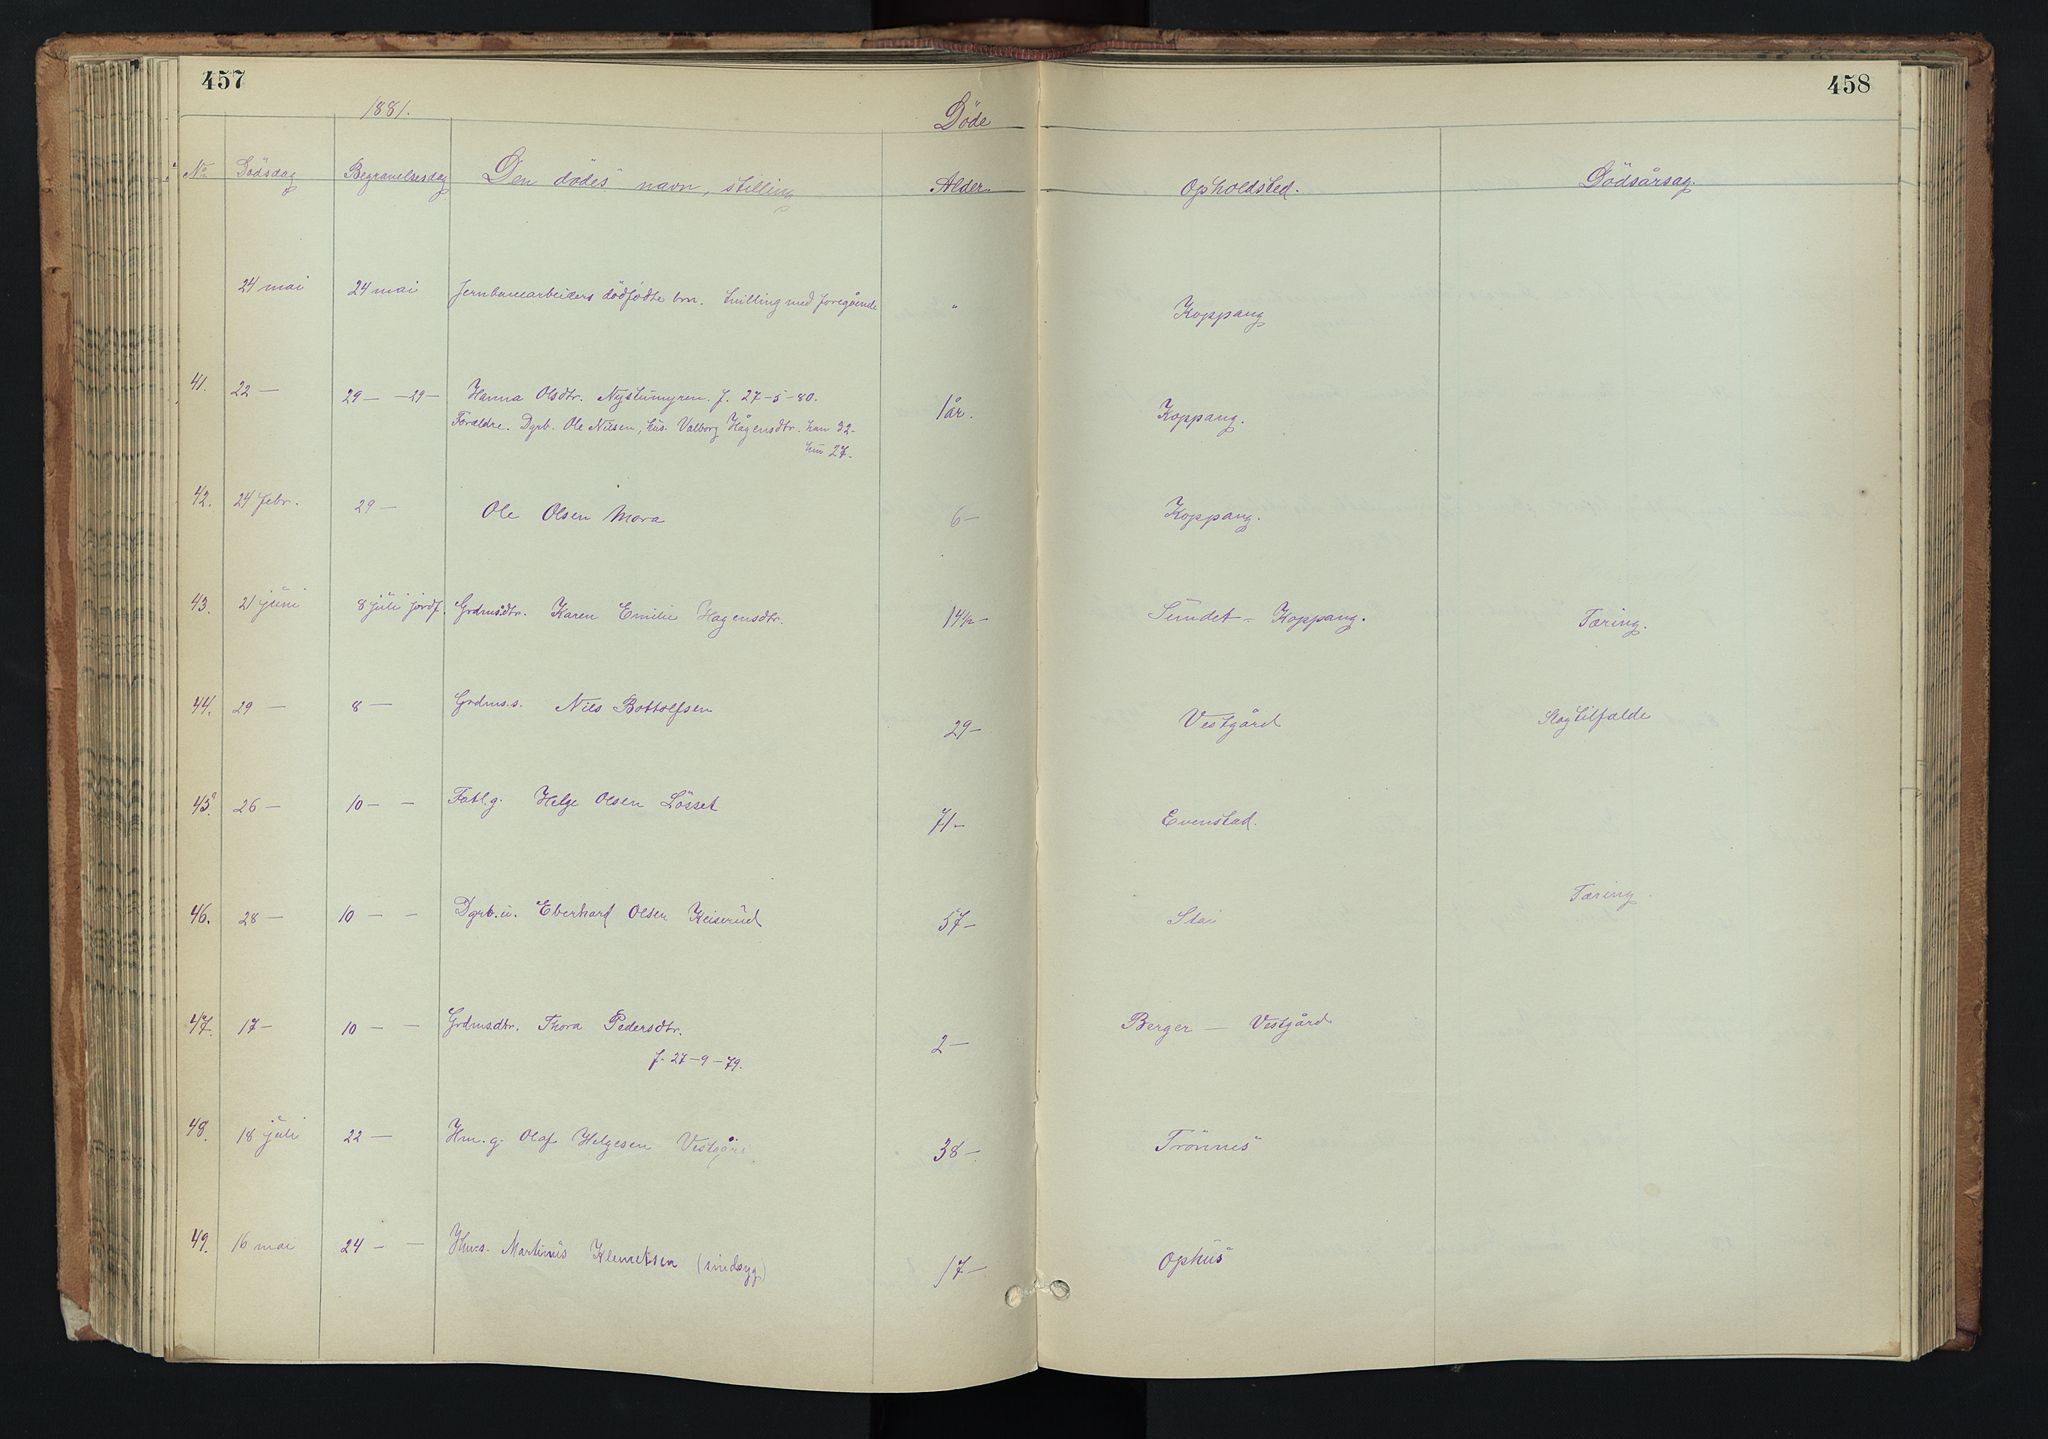 457
458
1881.
Döde
No Dödsdag Begravelsesdag Den dödes navn, stilling Alder. Opholdsted. Dödsårsag.
24 mai 24 mai Jernbanearbeiders dödfödte brn. tvilling med foregående " Koppang
41. 22 — 29 — -29- Hanna Olsdtr. Nystumyren. f. 27-5-80. 1 år. Koppang.
Forældre. Dgrb. Ole Nilsen, hus. Valborg Hågensdtr. han 32-
hun 27.
42. 24 febr. 29 — Ole Olsen Mora 6- Koppang.
43. 21 juni 8 juli jordf. Grdmsdtr. Karen Emilie Hagensdtr. 14½- Sundet - Koppang. Tæring.
44. 29 — 8 — Grdms.s. Nils Bottolfsen 29- Vestgård Slagtilfælde
45. 26 — 10 — — Fatl.g. Helge Olsen Lösset 71- Evenstad.
46. 28 — 10 — — Dgrb.u. Eberhard Olsen Keiserud 57- Stai Tæring.
47. 17 — 10 — — Grdmsdtr. Thora Pedersdtr. 2- Berger — Vestgård
f. 27-9-79.
48. 18 juli 22 — Hm.g. Olaf Helgesen Vestgård 38- Trönnes
49. 16 mai 24 — — Hm.s. Martinus Klemetsen (sindsyg) 17- Ophus